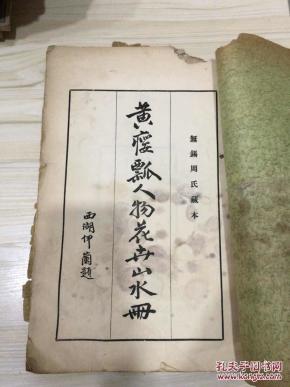 無錫周氏藏本
黃癭瓢人物花卉山水冊
西湖伊蘭題
孔夫子旧书网